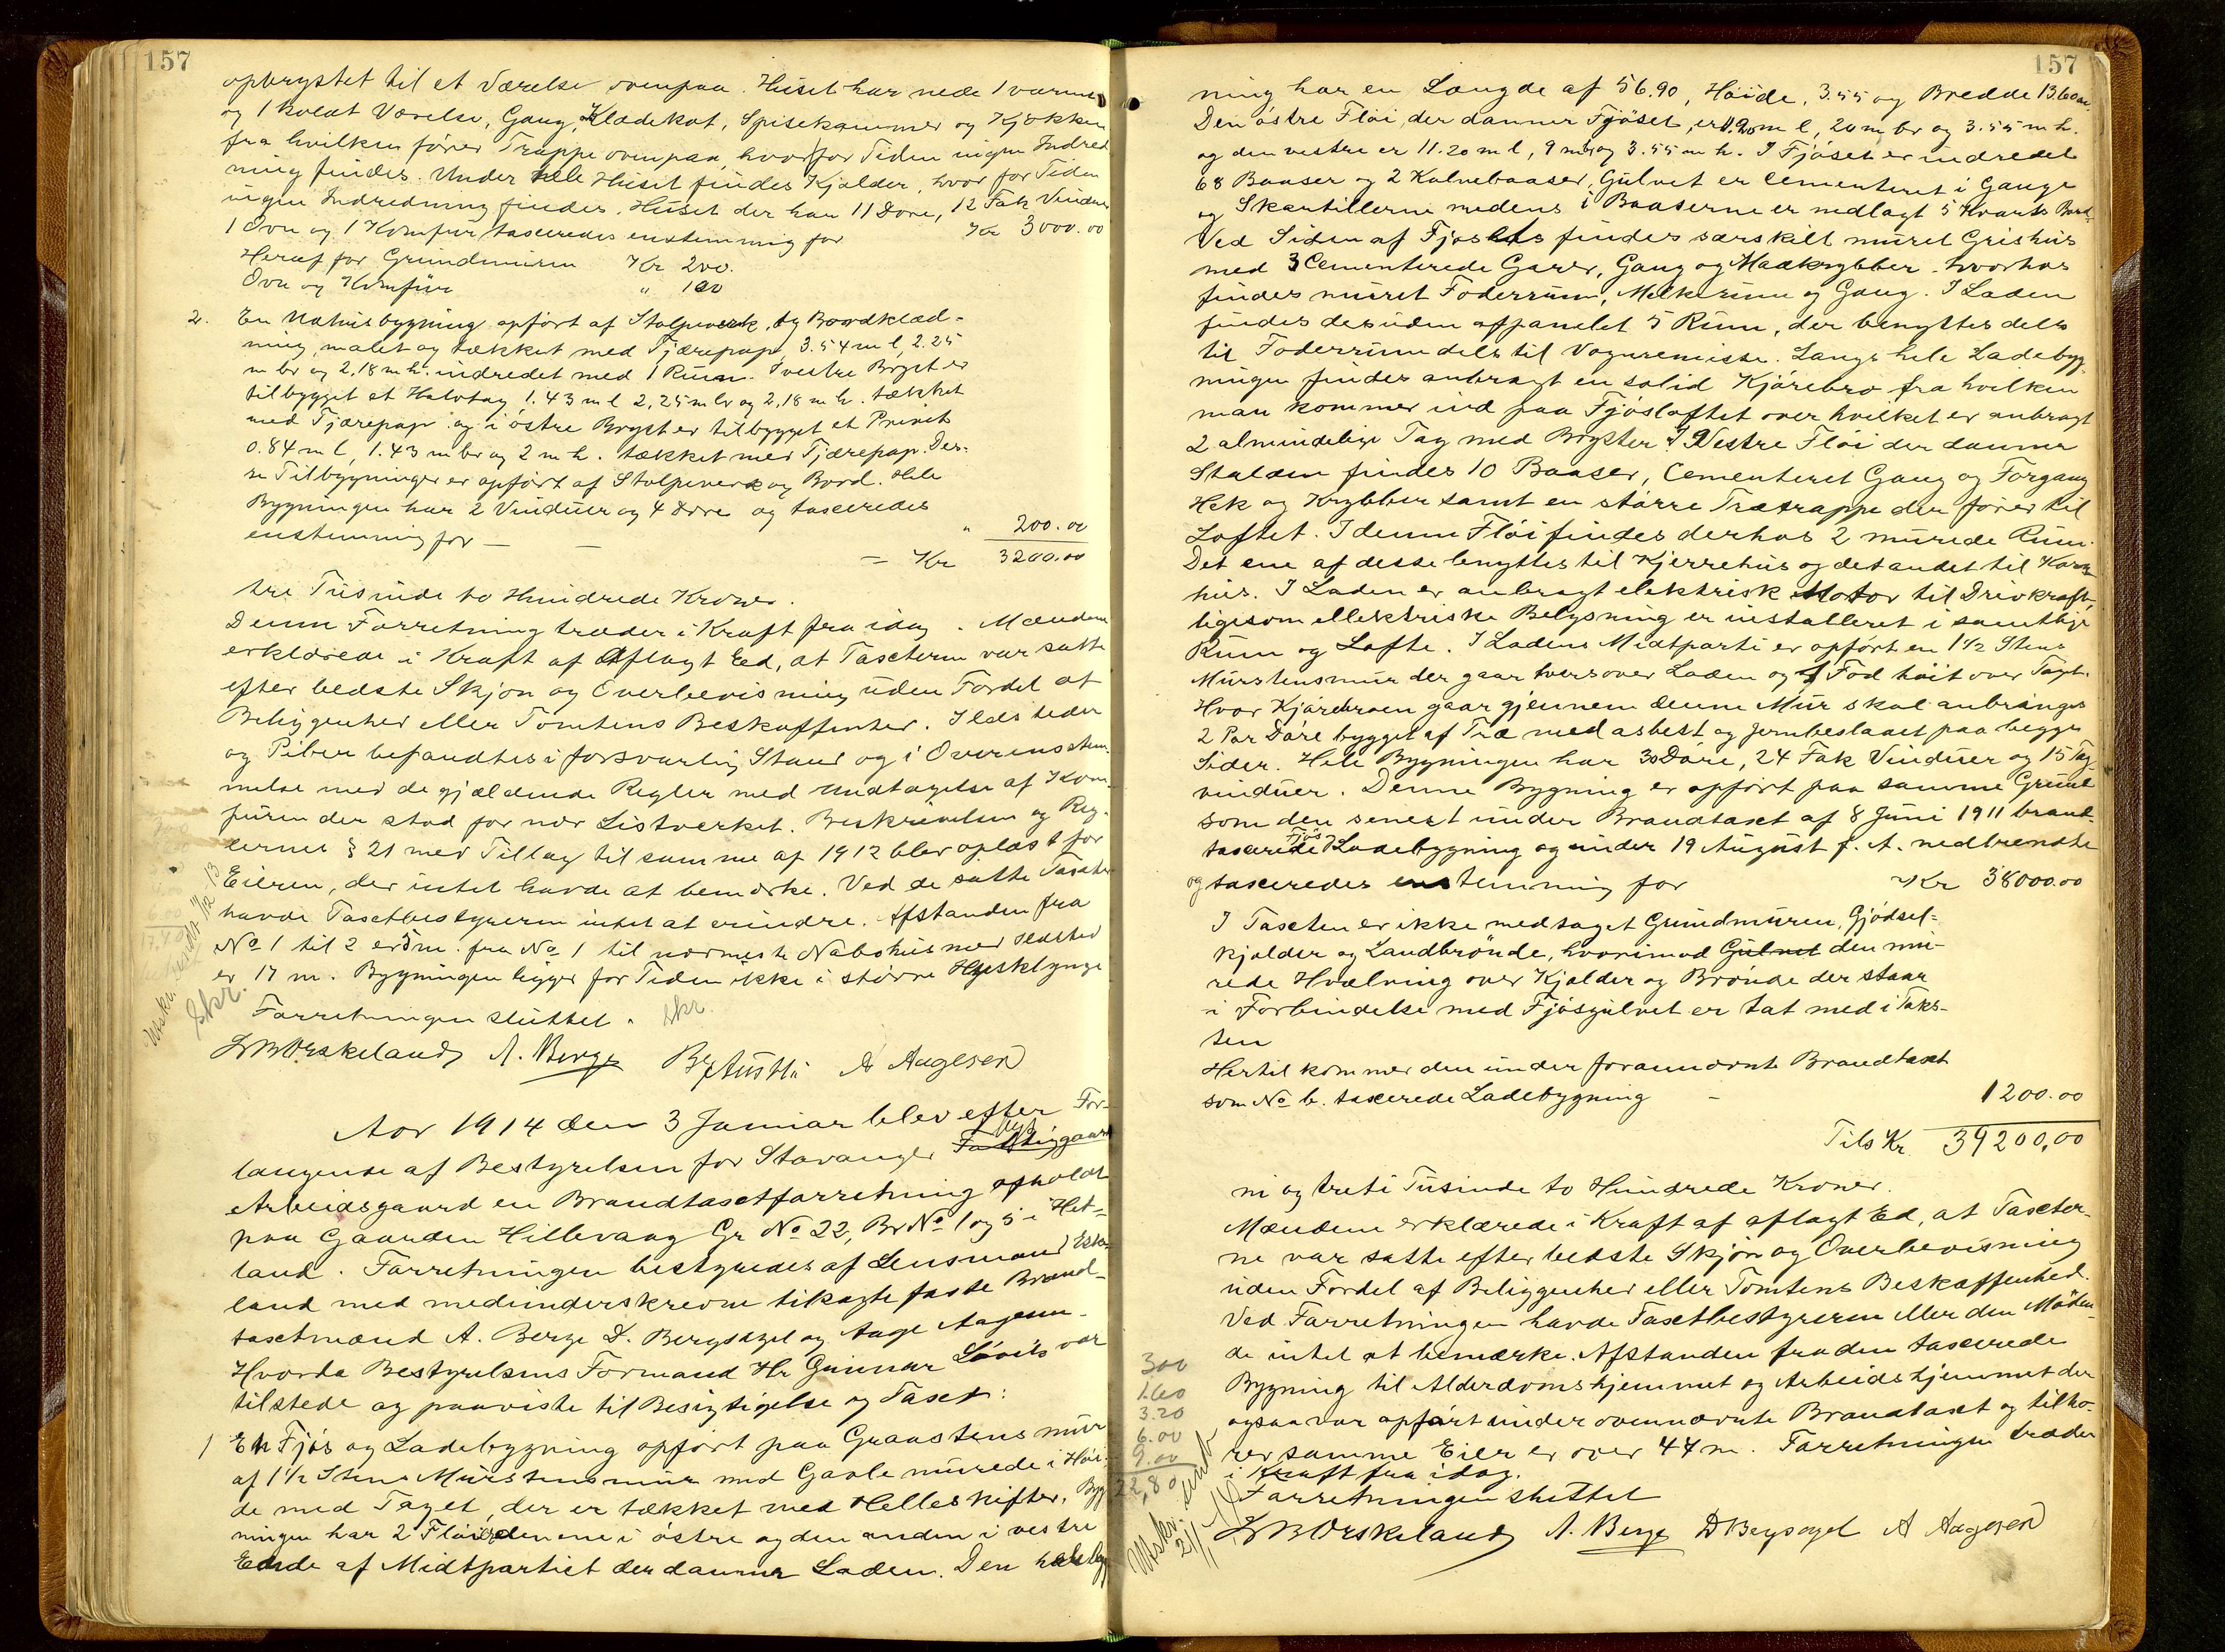 157
opbrystet til et Værelse ovenpaa. Huset har nede 1 varmt
og 1 koldt Værelse, Gang, Klædekot, Spisekammer og Kjøkken
fra hvilken fører Trappe ovenpaa, hvor for Tiden ingen Indred
ning findes. Under hele Huset findes Kjælder, hvor for Tiden
ingen Indredning findes. Huset der har 11 Døre, 12 Fak Vinduer
1 Ovn og 1 Komfur taxeredes enstemmig for Kr 3000.00
Heraf for Grundmuren Kr 200.
Ovn og Komfur " 100
2. En Udhusbygning opført af Stolpeverk, og Bordklæd-
ning, malet og tækket med Tjærepap, 3.54 m l, 2.25
m br og 2,18 m h. indredet med 1 Rum. I vestre Bryst er
tilbygget et Halvtag 1.43 m l 2,25 m br og 2,18 m h. tækket
med Tjærepap og i østre Bryst er tilbygget et Privet
0.84 m l, 1.43 m br og 2 m h. tækket med Tjærepap. Dis-
se Tilbygninger er opført af Stolpeverk og Bord. Hele
Bygningen har 2 Vinduer og 4 Døre og taxeredes
enstemmig for — — " 200.00
— Kr 3200.00
tre Tusinde to Hundrede Kroner.
Denne Forretning træder i Kraft fra idag. Mændene
erklærede i Kraft af aflagt Ed, at Taxterne var satte
efter bedste Skjøn og Overbevisning uden Fordel af
Beliggenhed eller Tomtens Beskaffenhed. Ildsteder
og Piber befandtes i forsvarlig Stand og i Overensstem-
melse med de gjældende Regler med Undtagelse af Kom-
furen der stod for nær Listverket. Beskrivelsen og Reg-
lernes § 21 med Tillæg til samme af 1912 blev oplæst for
Eieren, der intet havde at bemærke. Ved de satte Taxter
havde Taxtbestyreren intet at erindre. Afstanden fra
No 1 til 2 er 5 m. fra No 1 til nærmeste Nabohus med Ildsted
er 17 m. Bygningen ligger for Tiden ikke i større Husklynge
Forretningen sluttet. skr.
Utskr. sendt 11/12-13
Skr.
L B Orskeland A. Berge A Aagesen
Aar 1914 den 3 Januar blev efter For-
langende af Bestyrelsen for Stavanger
Arbeidsgaard en Brandtaxtforretning afholdt
paa Gaarden Hillevaag Gr No 22, Br No 1 og 5 i Het-
land. Forretningen bestyredes af Lensmand Eske-
land med medunderskrevne tilkagte faste Brand-
taxtmænd A. Berge D. Bergsagel og Aage Aagesen.
Hvorda Bestyrelsens Formand Hr Gunnar Løvik var
tilstede og paaviste til Besigtigelse og Taxt:
1 En Fjøs og Ladebygning opført paa Graastens mur
af 1½ Stens Murstensmur med Gavle murede i Høi-
de med Taget, der er tækket med Helleskifter. Byg
ningen har 2 Fløie den ene i østre og den anden i vestre
Ende af Midtpartiet der danner Laden. Den hele Byg
157
ning har en Længde af 56.90, Høide, 3.55 og Bredde 13.60 m.
Den østre Fløi, der danner Fjøset, er 11.20 m l, 20 m br og 3.55 m h.
og den vestre er 11.20 m l, 9 m br og 3.55 m h. I Fjøset er indredet
68 Baaser og 2 Kalvebaaser, Gulvet er Cementeret i Gange
og Skantillerne medens i Baaserne er nedlagt 5 Kvarts Bord.
Ved Siden af Fjøset findes særskilt muret Grishus
med 3 Cementerede Garer, Gang og Madkrybber. hvorhos
findes muret Foderrum, Melkerum og Gang. I Laden
findes desuden afpanelet 5 Rum, der benyttes dels
til Foderrum dels til Vognremisse. Langs hele Ladebyg
ningen findes anbragt en solid Kjørebro fra hvilken
man kommer ind paa Fjøsloftet over hvilket er anbragt
2 almindelige Tag med Bryster. I Vestre Fløi der danner
Stalden findes 10 Baaser, Cementeret Gang og Forgang
Hek og Krybber samt en større Trætrappe der fører til
Loftet. I denne Fløi findes derhos 2 murede Rum.
Det ene af desse benyttes til Kjerrehus og det andet til
hus. I Laden er anbragt elektrisk Motor til Drivkraft,
ligesom ellektriske Belysning er installeret i samtlige
Rum og Lofte. I Ladens Midtparti er opført en 1½ Stens
Murstensmur der gaar tvers over Laden og 1 Fod høit over Taget.
Hvor Kjørebroen gaar gjennem denne Mur skal anbringes
2 Par Døre bygget af Træ med asbest og Jernbeslaaet paa begge
Sider. Hele Bygningen har 30 Døre, 24 Fak Vinduer og 15 Tag-
vinduer. Denne Bygning er opført paa samme Grund
som den senest under Brandtaxt af 8 Juni 1911 brand-
taxerede Fjøs & Ladebygning og under 19 August f. A. nedbrendte
og taxeredes enstemmig for Kr 38000.00
I Taxten er ikke medtaget Grundmuren, Gjødsel-
kjælder og Landbrønde, hvorimod Gulvet den mu-
rede Hvælvning over Kjælder og Brønde der staar
i Forbindelse med Fjøsgulvet er tat med i Taks-
ten
Hertil kommer den under forannævnte Brandtaxt
som No b. taxerede Ladebygning — 1200.00
Tils Kr. 39200,00
ni og treti Tusinde to Hundrede Kroner.
Mændene erklærede i Kraft af aflagt Ed, at Taxter-
ne var satte efter bedste Skjøn og Overbevisning
uden Fordel af Beliggenhed eller Tomtens Beskaffenhed.
Ved Forretningen havde Taxtbestyreren eller den Møden-
de intet at bemærke. Afstanden fra den taxerede
Bygning til Alderdomshjemmet og Arbeidshjemmet der
ogsaa var opført under ovennævnte Brandtaxt og tilhø-
rer samme Eier er over 44 m. Forretningen træder
i Kraft fra idag.
Forretningen sluttet
300
1.60
3.20
6.00
9.00
22,80
Utskr. sendt
21/1-14
L B Orskeland A. Berge D Bergsagel A Aagesen